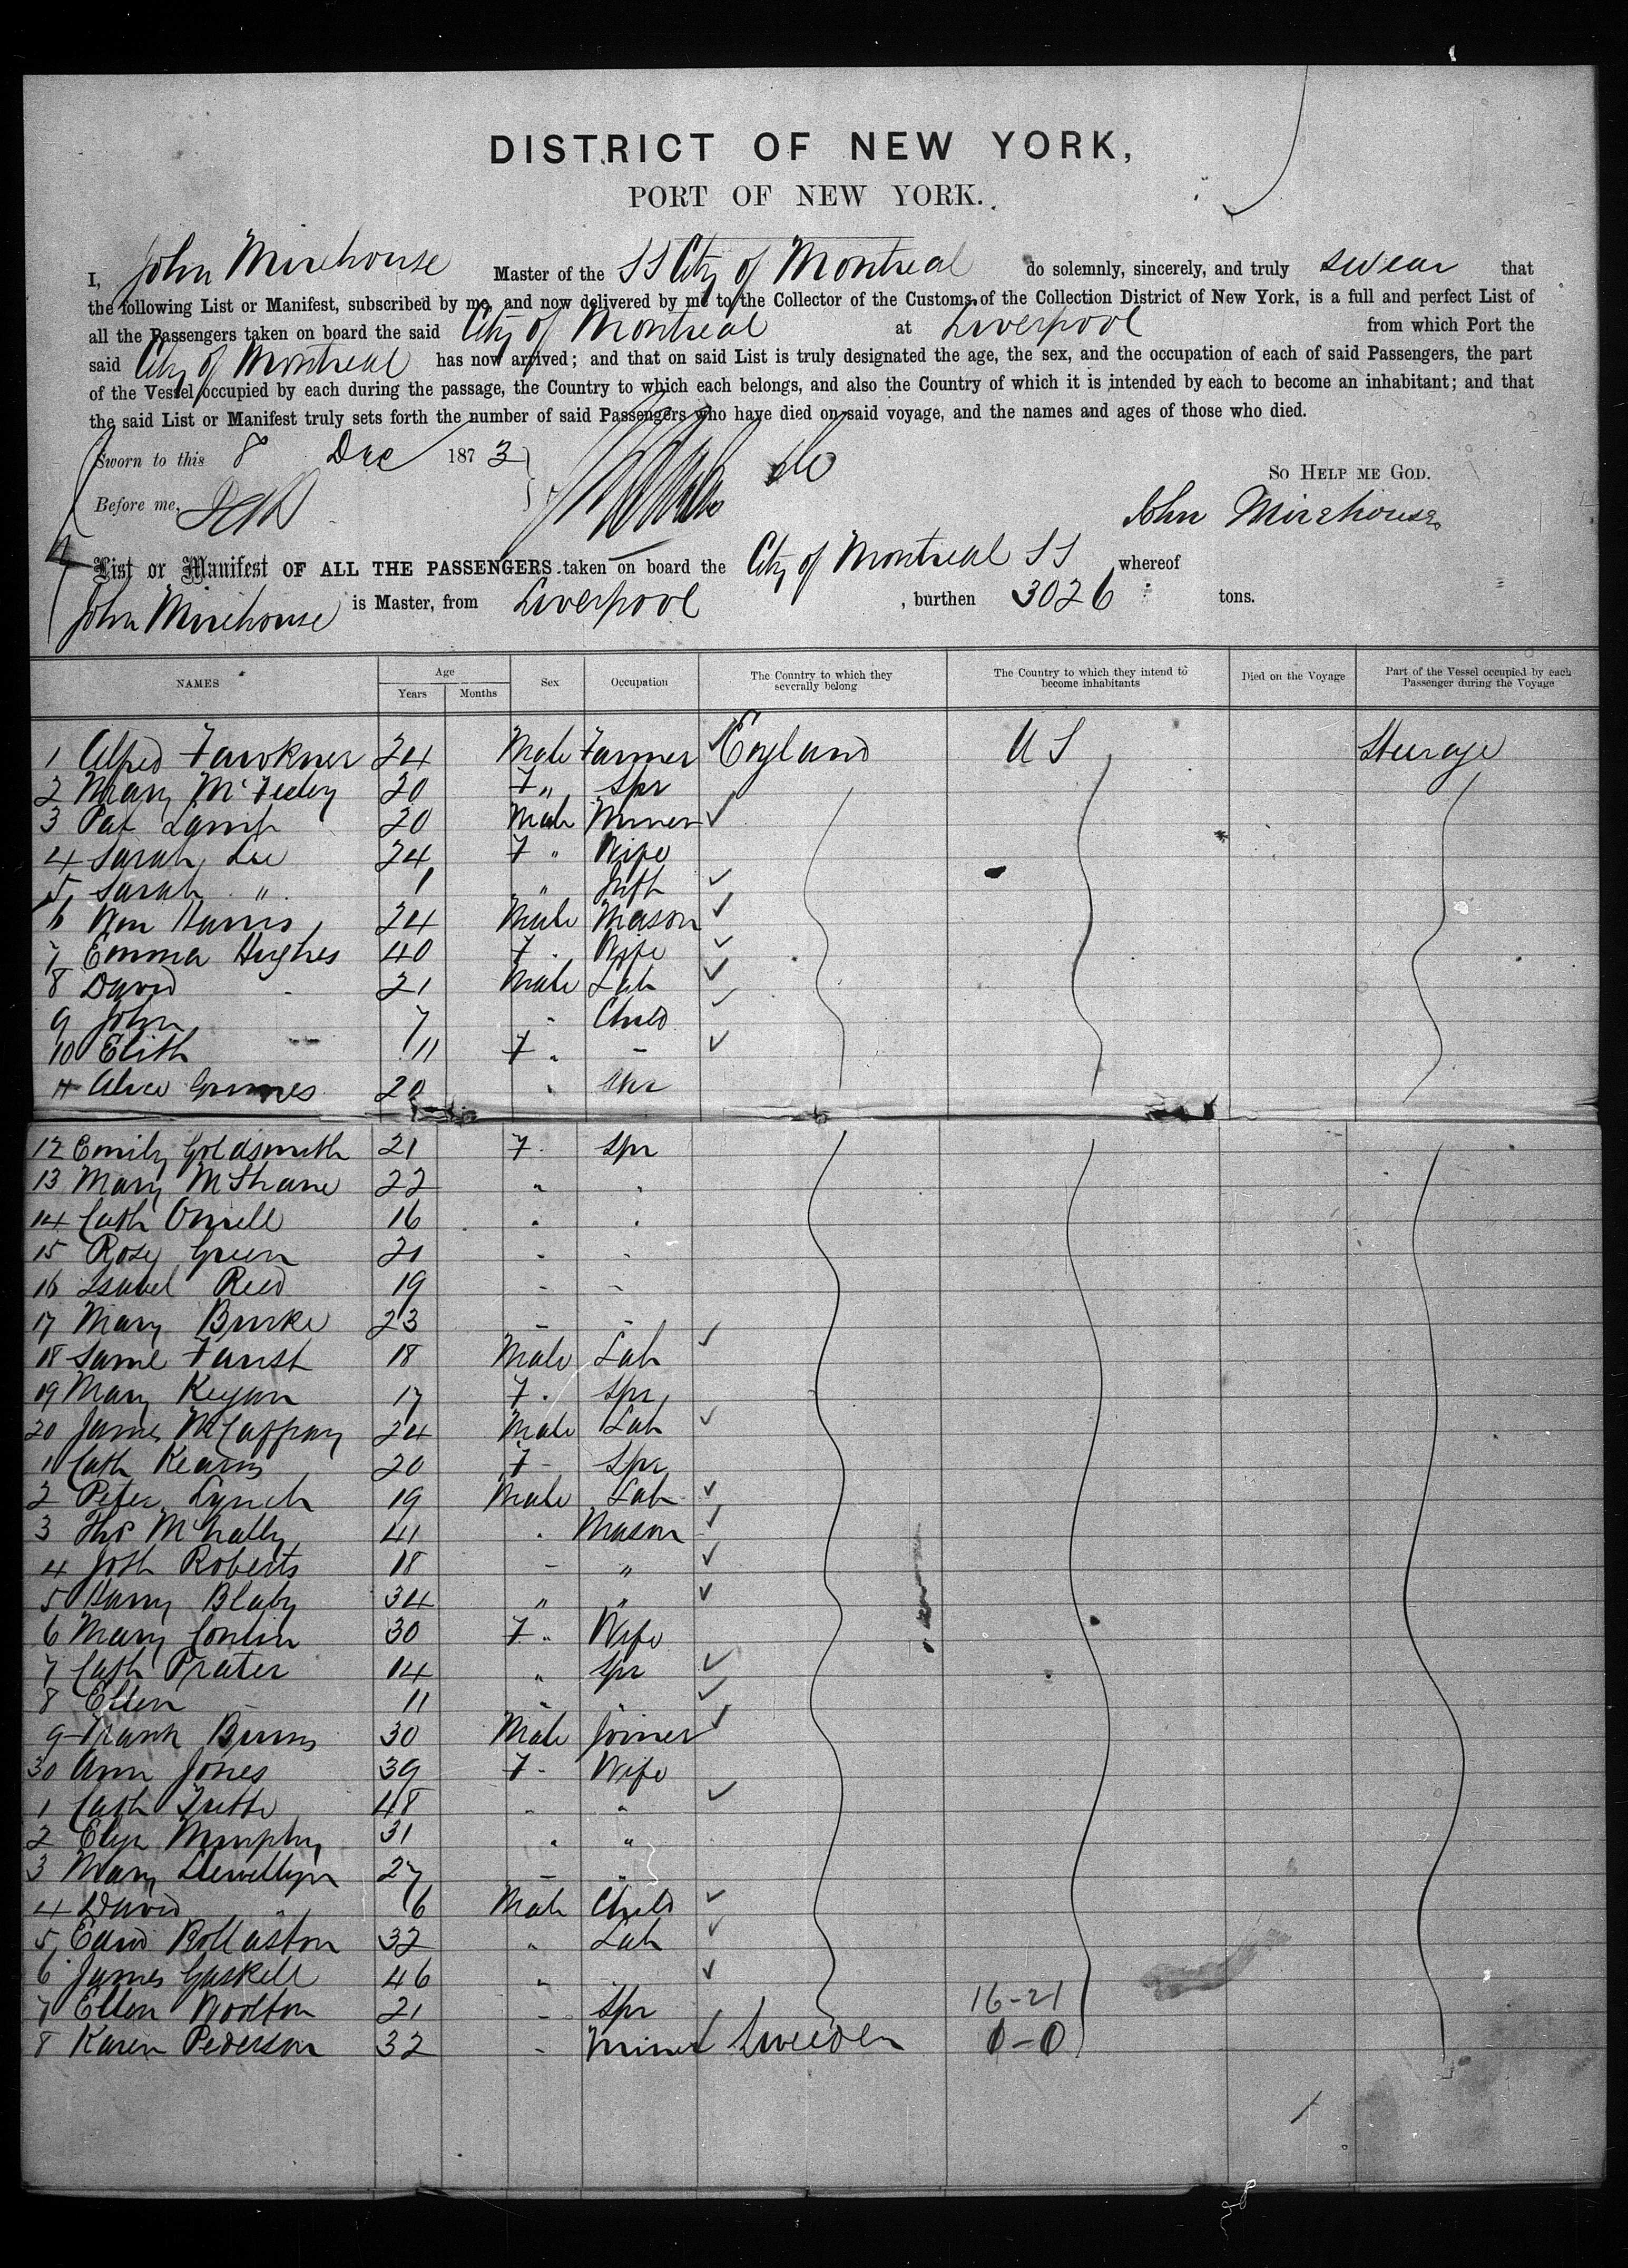 DISTRICT OF NEW YORK,
PORT OF NEW YORK.
I, John Mirehouse Master of the SS City of Montreal do solemnly, sincerely, and truly swear that
the following List or Manifest, subscribed by me, and now delivered by me to the Collector of the Customs of the Collection District of New York, is a full and perfect List of
all the Passengers taken on board the said City of Montreal at Liverpool from which Port the
said City of Montreal has now arrived; and that on said List is truly designated the age, the sex, and the occupation of each of said Passengers, the part
of the Vessel occupied by each during the passage, the Country to which each belongs, and also the Country of which it is intended by each to become an inhabitant; and that
the said List or Manifest truly sets forth the number of said Passengers who have died on said voyage, and the names and ages of those who died.
Sworn to this 8 Dec 1873
So Help me God.
Before me,
John Mirehouse
List or Manifest OF ALL THE PASSENGERS taken on board the City of Montreal SS whereof
John Mirehouse is Master, from Liverpool, burthen 3026 tons.
NAMES Age Years Months Sex Occupation The Country to which they severally belong The Country to which they intend to become inhabitants Died on the Voyage Part of the Vessel occupied by each Passenger during the Voyage
1 Alfred Fawkner 24 Male Farmer England U S Steerage
2 Mary 20 F " Spr
3 Pat 20 Male Miner
4 Sarah Lee 24 F " Wife
5 Sarah " 1 " Inft
6 Wm Harris 24 Male Mason
7 Emma Hughes 40 F Wife
8 David 21 Male Lab
9 John 7 " Child
10 Edith 11 F " "
11 Alice Grimes 20 " Spr
12 Emily Goldsmith 21 F " Spr
13 Mary McShane 22 " "
14 Cath Oneill 16 " "
15 Rosy Green 21 " "
16 Isabel Reed 19 " "
17 Mary Burke 23 " "
18 Saml 18 Male Lab
19 Mary Keegan 17 F " Spr
20 James McCaffray 24 Male Lab
1 Cath Kearns 20 F " Spr
2 Peter Lynch 19 Male Lab
3 Thos McNally 41 " Mason
4 Josh Roberts 18 " "
5 Harry Blaby 34 " "
6 Mary Conlin 30 F " Wife
7 Cath Prater 14 " Spr
8 Ellen " 11 " "
9 Frank Burns 30 Male Joiner
30 Ann Jones 39 F " Wife
1 Cath 48 " "
2 Eliza Murphy 31 " "
3 Mary Llewellyn 27 " "
4 David " 6 Male Child
5 Edwd Rollaston 32 " Lab
6 James Gaskell 46 "
7 Ellen Woolton 21 " Spr 16-21
8 Karen Pederson 32 " Miner Sweeden 0-0